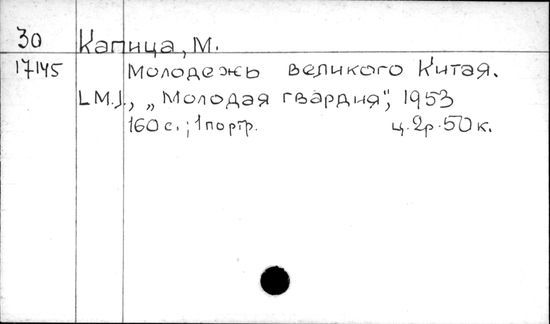 30 Капица, М.
17145 Молодежь великого Китая.
[М.], „Молодая гвардия", 1953
160 с.; 1 портр. ц. 2р. 50 к.